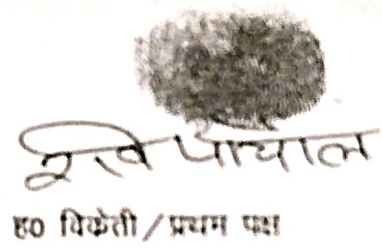 रवि पांचाल
ह० विकेती / प्रथम पक्ष